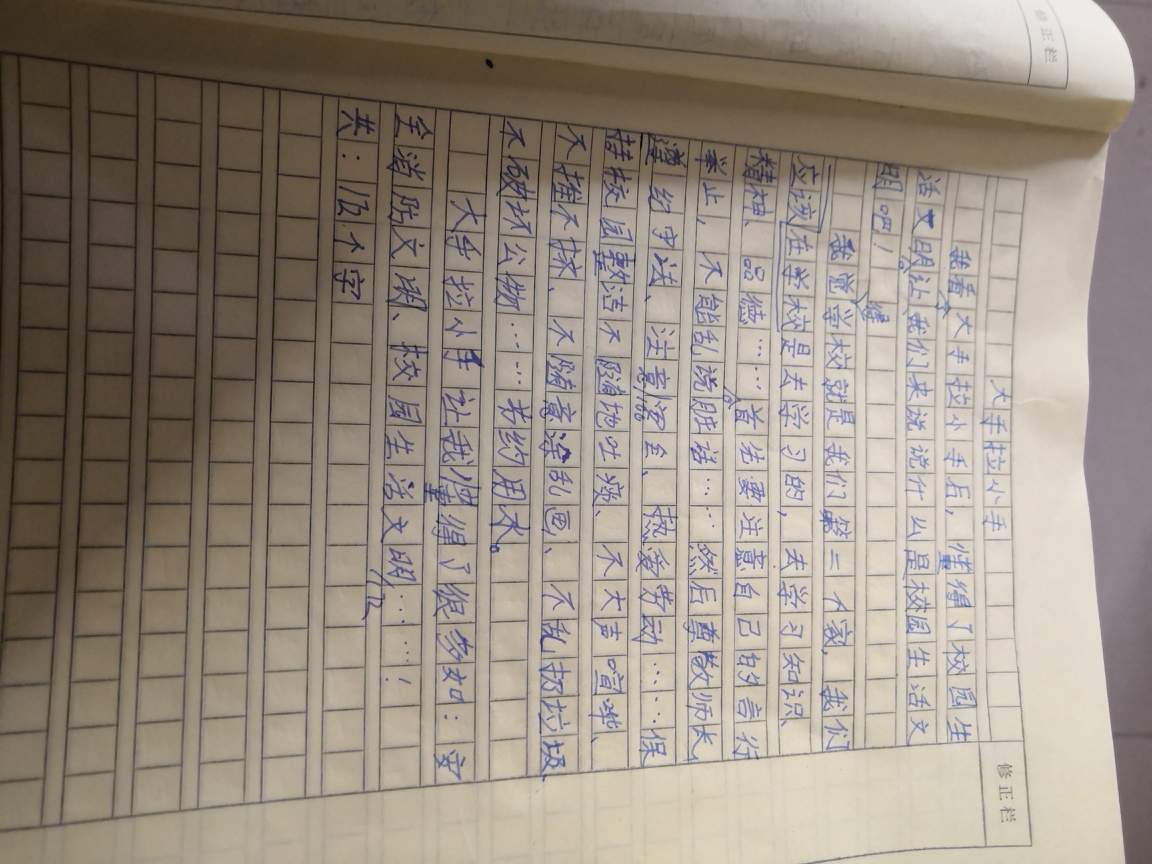 修正栏
修正栏
大手拉小手
我看大手拉小手后，懂得了校园生
活文明让我们来说说什么是校园生活文
明吧！
我觉得学校就是我们第二个家，我们
应该在学校是去学习的，去学习知识、
精神、品德……首先要注意自己的言行
举止，不能乱说脏话……然后尊敬师长，
遵纪守法、注意安全、热爱劳动……保
持校园整洁不随地吐痰、不大声喧哗、
不推不挤、不随意涂乱画、不乱扔垃圾、
不破坏公物……节约用水。
大手拉小手让我懂得了很多如：安
全消防文明、校园生活文明……！
共：个字